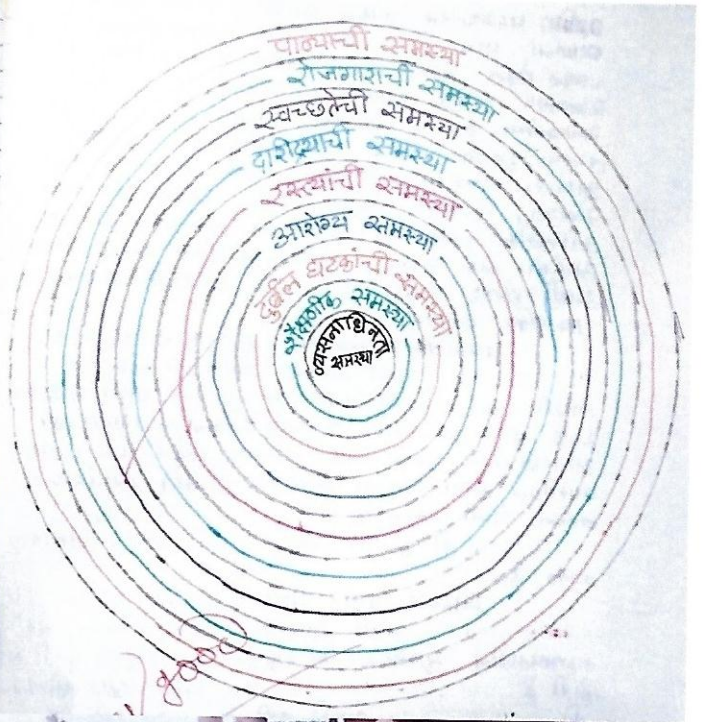 पाण्याची समस्या
रोजगाराची समस्या
स्वच्छतेची समस्या
दारिद्र्याची समस्या
रस्त्यांची समस्या
आरोग्य समस्या
दुर्बल घटकांची समस्या
शैक्षणीक समस्या
व्यसनाधिनता
समस्या